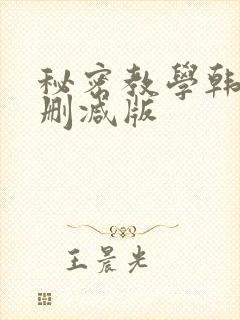 秘密教學韩
删减版
王晨光